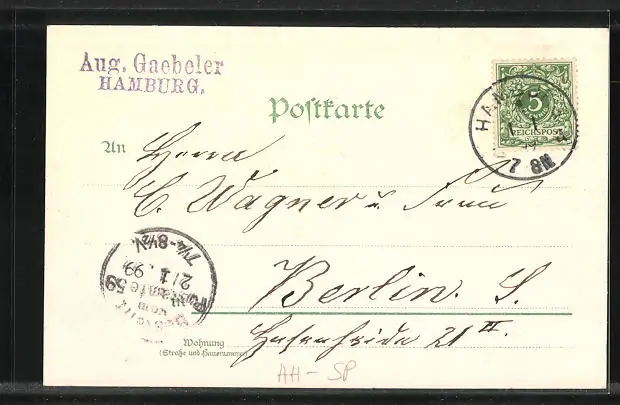 Aug. Gaebeler
HAMBURG.
5
REICHSPOST
HAM
1 1
7 8N
Postkarte
An Herrn
C. Wagner u. Frau
Bestellt
vom
Postamte 59
2/1.99
7¼-8½N.
in Berlin. S.
Hasenheide 21 II.
Wohnung
(Straße und Hausnummer)
AH - SP